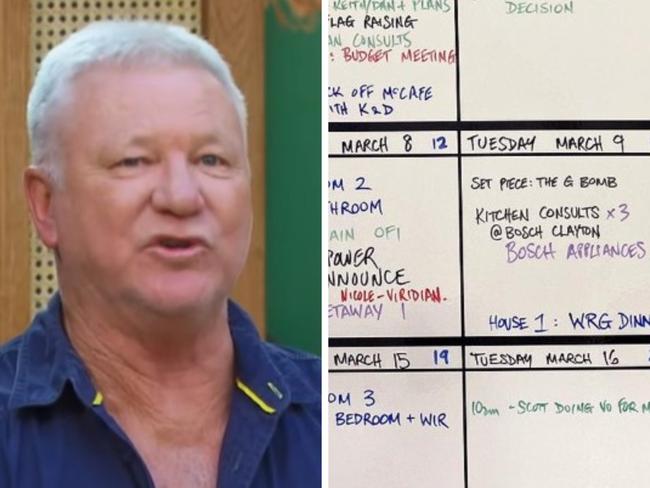 KEITH/DAN + PLANS
FLAG RAISING
AN CONSULTS
: BUDGET MEETING
CK OFF McCAFE
ITH K&D
DECISION
MARCH 8 12
OM 2
THROOM
AIN OF1
POWER
NNOUNCE
NICOLE-VIRIDIAN.
ETAWAY 1
TUESDAY MARCH 9
SET PIECE: THE G BOMB
KITCHEN CONSULTS x3
@BOSCH CLAYTON
BOSCH APPLIANCES
HOUSE 1: WRG DINN
MARCH 15 19
OM 3
BEDROOM + WIR
TUESDAY MARCH 16
10am - SCOTT DOING VO FOR M